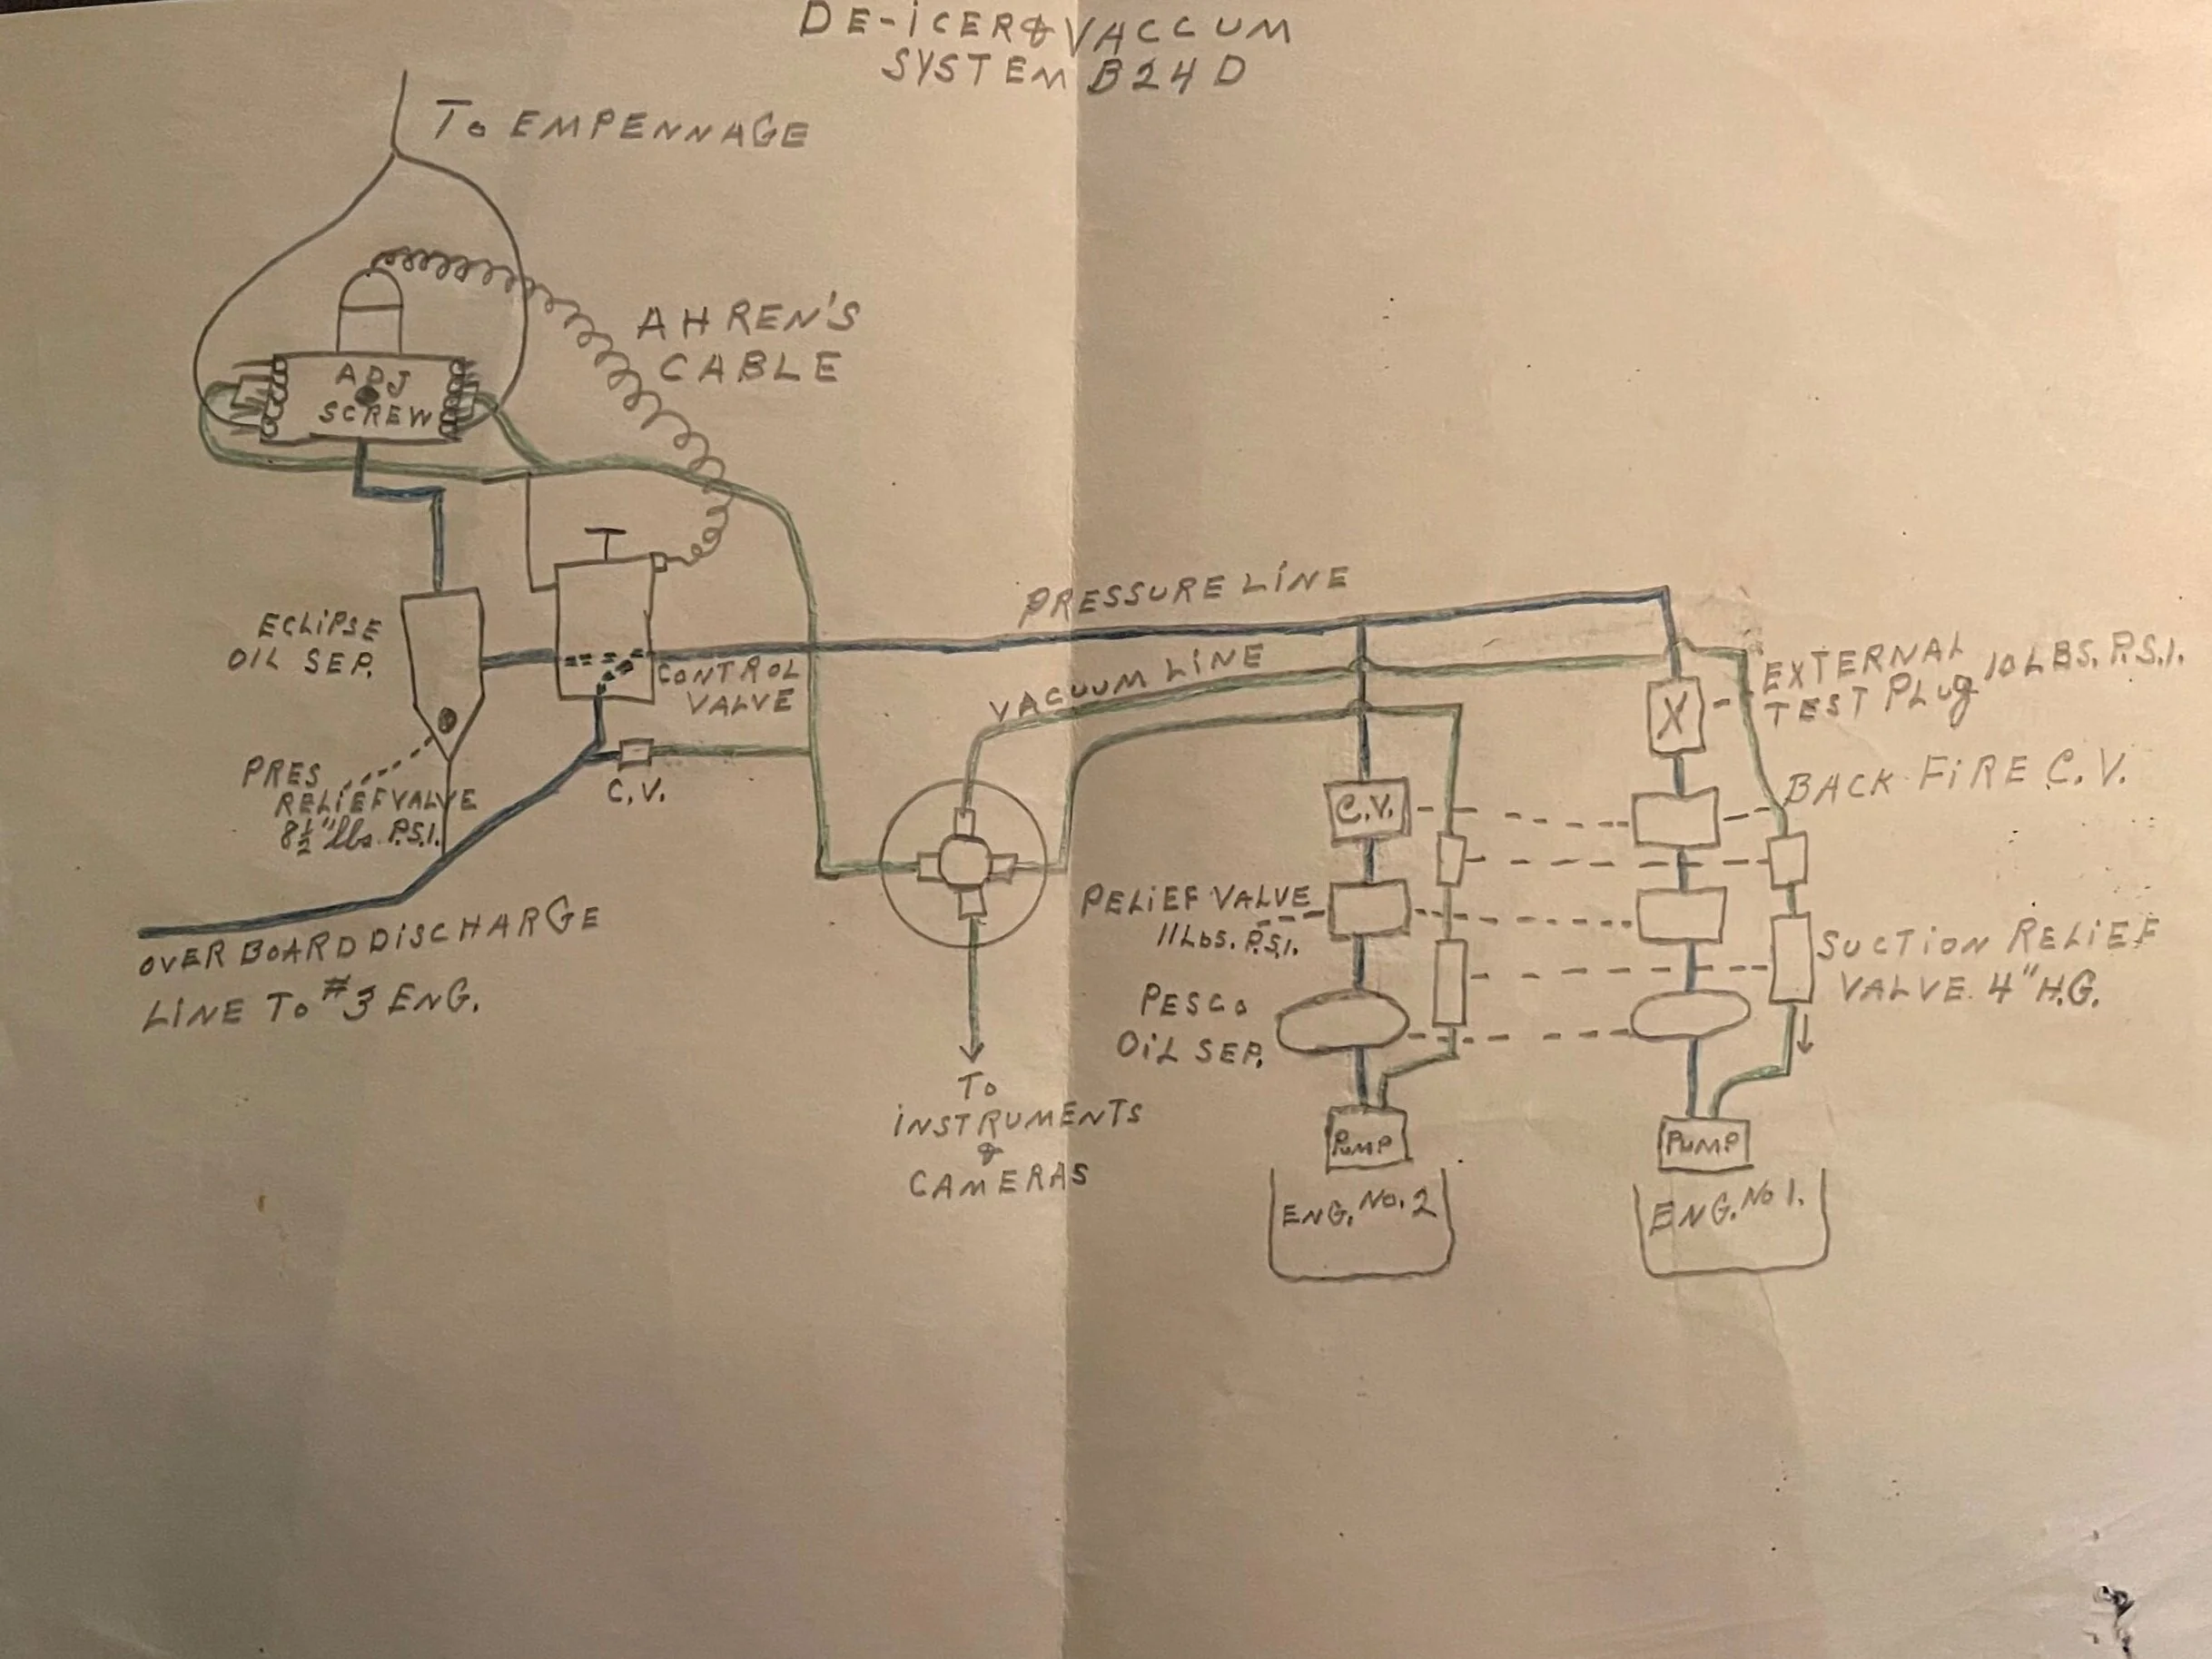 DE-iCER & VACCUM
SYSTEM B24D
To EMPENNAGE
AHREN'S
CABLE
ADJ
SCREW
ECLiPSE
OiL SEP.
CONTROL
VALVE
PRES
RELiEF VALVE
8½" lbs. P.S.I.
C.V.
OVER BOARD DiSCHARGE
LiNE To #3 ENG.
PRESSURE LiNE
VACUUM LiNE
To
iNSTRUMENTS
&
CAMERAS
EXTERNAL
TEST PLug 10 LBS. P.S.I.
BACK-FiRE C.V.
X
C.V.
RELiEF VALVE
11 Lbs. P.S.I.
SUCTiON RELiEF
VALVE. 4" H.G.
PESCO
OiL SEP.
PUMP
PUMP
ENG. No. 2
ENG. No 1.